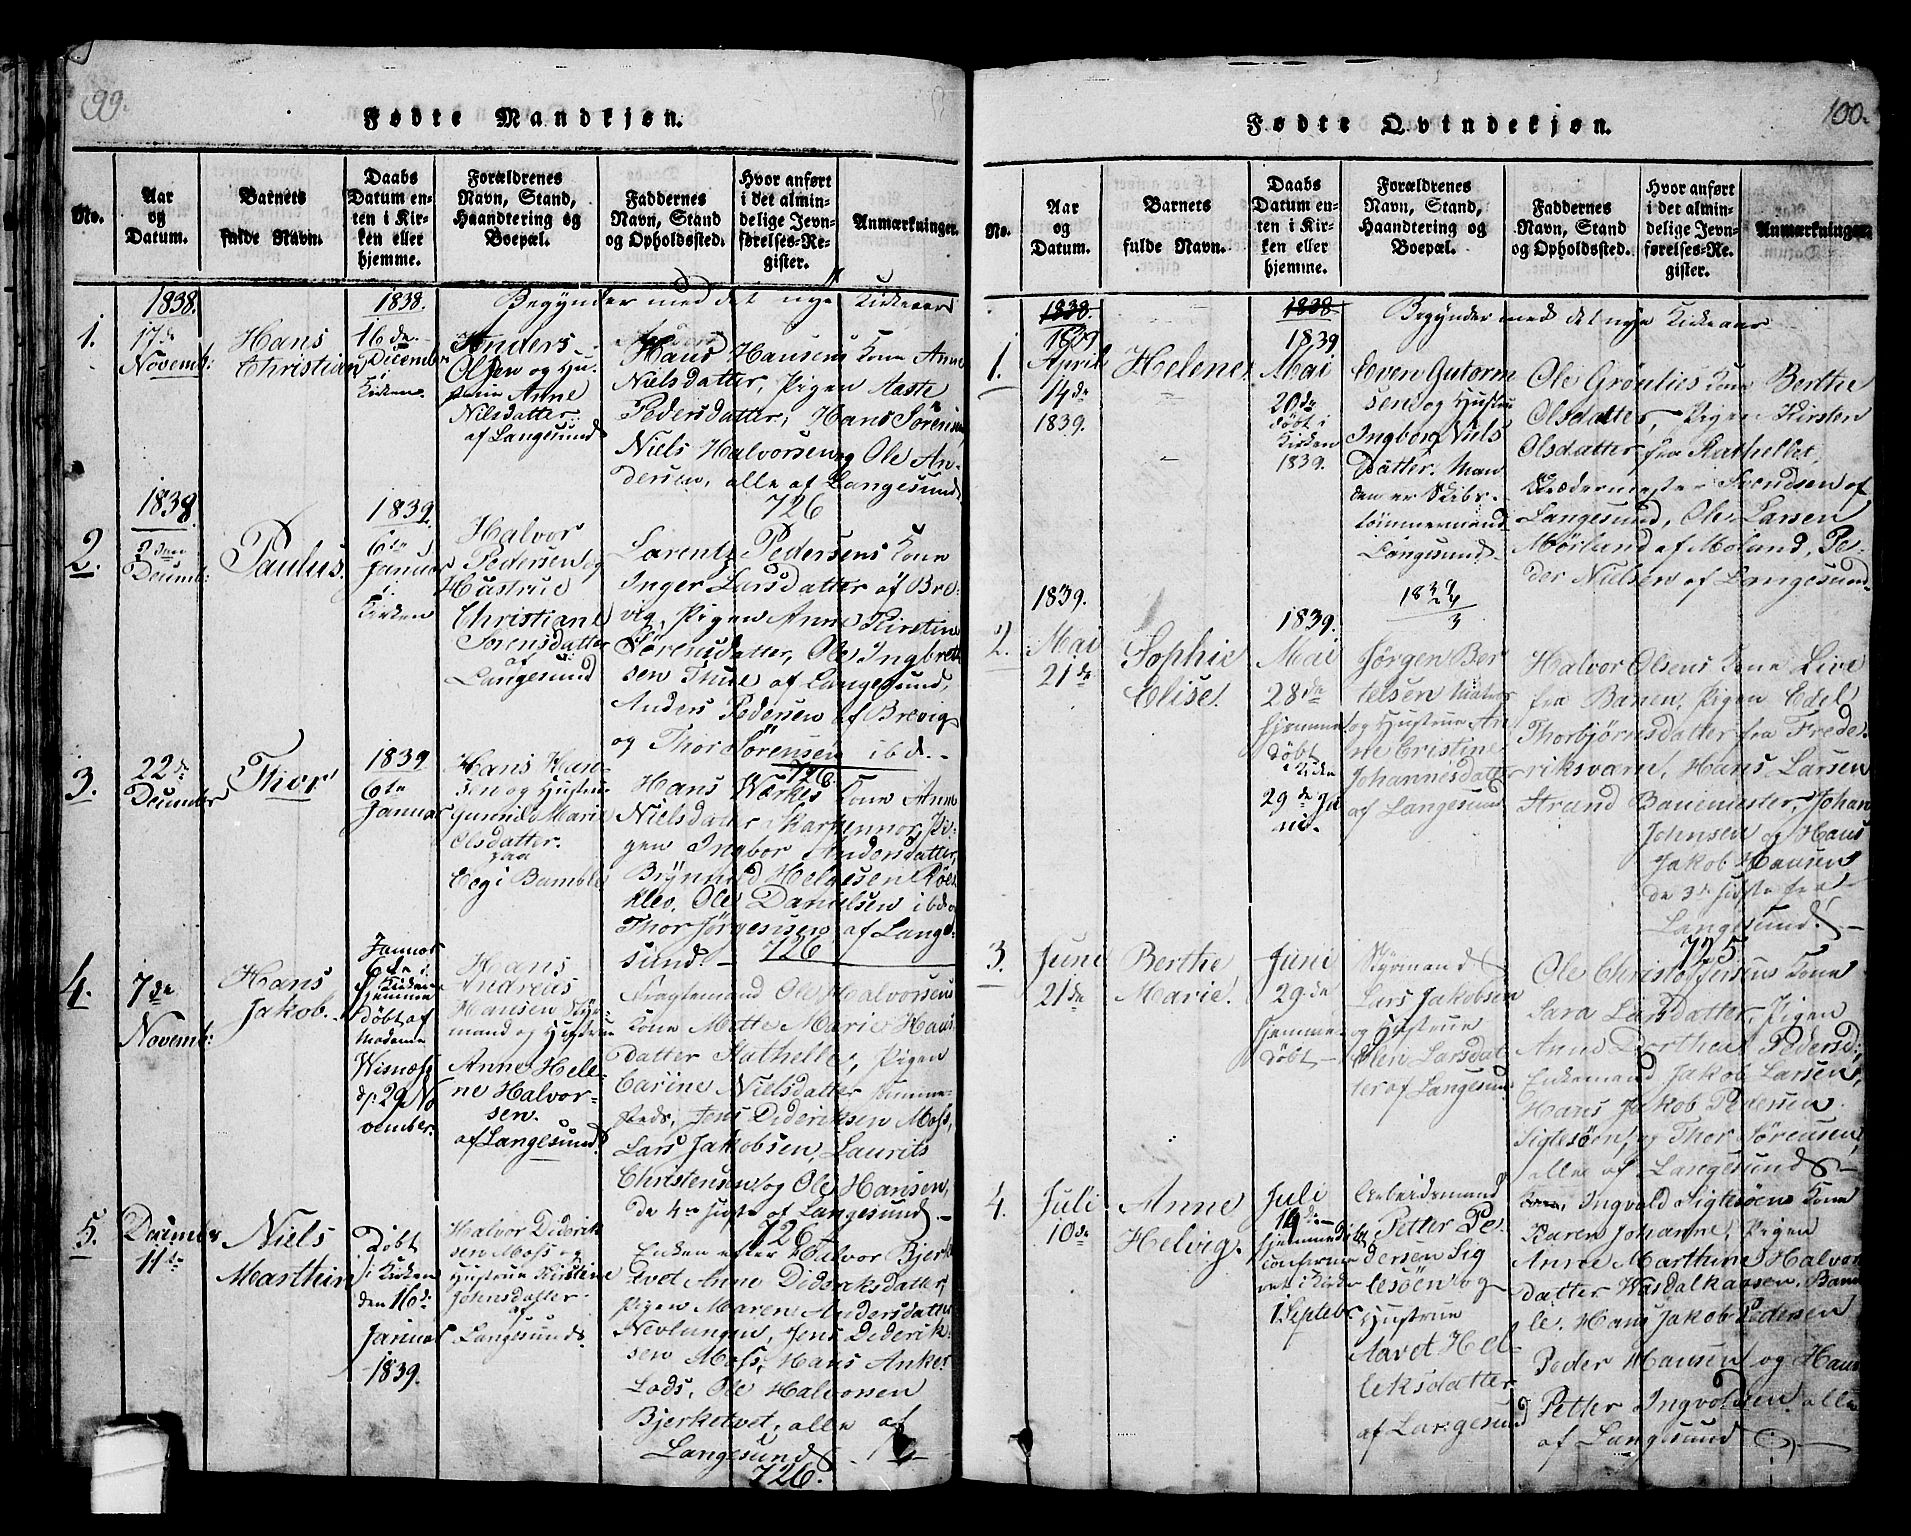 99.
Fødte Mandkjøn.
No.
Aar
og
Datum.
Barnets
fulde Navn.
Daabs
Datum en-
ten i Kir-
ken eller
hjemme.
Forældrenes
Navn, Stand,
Haandtering og
Boepæl.
Faddernes
Navn, Stand
og Opholdssted.
Hvor anført
i det almin-
delige Jevn-
førelses-Re-
gister.
Anmærkninger.
Begynder med det nye Kirkeaar
1.
1838.
17de
Novemb:
Hans
Christian
1838.
16de
December
i
Kirken
Anders
Olsen og Hu-
strue Anne
Nilsdatter
af Langesund
Hans Hansens Kone Anne
Nielsdatter, Pigen Aaste
Pedersdatter, Hans Sørensen
Niels Halvorsen og Ole An-
dersen, alle af Langesund
726
2.
1838.
Decemb:
Paulus.
1839.
6te
Januar
i
Kirken
Halvor
Pedersen og
Hustrue
Christiane
Sørensdatter
af
Langesund
Lorentz Pedersens Kone
Inger Larsdatter af Bre-
vig, Pigen Anne Kirstin
Sørensdatter, Ole Ingbret-
sen Thue af Langesund,
Anders Pedersen af Brevig
og Thor Sørensen ibd.-
726
3.
22de
December
Thor
1839
6te
Januar
Hans Han-
sen og Hustrue
Gunnild Marie
Olsdatter
paa
Eeg i Bamble
Hans Werkes Kone Anne
Nielsdatter, Pi-
gen Ingbor Andersdatter,
Brynild Helgesen
Ole Danielsen ibd og
Thor Jørgensen af Lange-
sund
726
4.
7de
Novemb:
Hans
Jakob.
Januar
6te i
Kirken
Hjemme
døbt af
Madame
d. 29 No
vember.
Hans
Andreas
Hansen Styr-
mand og Hustrue
Anne Hele-
ne Halvor-
sen.
af Langesund
Fragtemand Ole Halvorsens
Kone Mette Marie Hans
datter Stathelle, Pigen
Carine Nielsdatter
Jens Dideriksen Moss,
Lars Jakobsen, Laurits
Christensen og Ole Hansen,
de 4re sidste af Langesund
726
5.
December
11te
Niels
Marthin
Døbt
i Kirken
den 16de
Januar
1839.
Halvor Diderik
sen Moss og
Hustrue Kirstine
Johnsdatter
af
Langesund.
Enken efter Halvor Bjerke
tvet Anne Dideriksdatter,
Pigen Maren Andersdatter
Nevlungen, Jens Diderik-
sen Moss, Hans Anker
Lods, Ole Halvorsen
Bjerketvet, alle af
Langesund
726.
100.
Fødte Qvindekjøn.
No.
Aar
og
Datum.
Barnets
fulde Navn.
Daabs
Datum en-
ten i Kir-
ken eller
hjemme.
Forældrenes
Navn, Stand,
Haandtering og
Boepæl.
Faddernes
Navn, Stand
og Opholdssted.
Hvor anført
i det almin-
delige Jevn-
førelses-Re-
gister.
Anmærkninger.
Begynder med det nye Kirkeaar
1.
1838.
1839
April
14de
1839.
Helene.
1838.
1839
Mai
20de
døbt i
Kirken
1839.
Even Gutorm
sen og Hustrue
Ingborg Niels
datter. Man
den er Skibs-
tømmermand
Langesund.
Ole Grønlies Kone Berthe
Olsdatter, Pigen Kirsten
Olsdatter fra Stathelle,
Skrædermester Svendsen af
Langesund, Ole Larsen
Mørland af Moland, Pe-
der Nielsen af Langesund
2.
1839.
Mai
21de
Sophie
Elise.
1839.
Mai
28de
Hjemme
døbt
i Kirken
29de
Jørgen Ber
telsen Matros
og Hustrue An
ne Cristine
Johannesdatter
af Langesund
Halvor Olsens Kone Live
fra Banen, Pigen Edel
Thorbjørnsdatter fra Frede-
riksværn, Hans Larsen
Strand Banemester, Johan
Johnsen og Hans
Jakob Hansen
de 3de sidste fra
Langesund
725.
3.
Juni
21de
Berthe
Marie.
Juni
29de
Hjemme
døbt
Styrmand
Lars Jakobsen
og Hustrue
Elen Larsdat
ter af Langesund
Ole Christoffersens Kone
Sara Larsdatter, Pigen
Anne Dorthea Pedersd:
Enkemand Jakob Larsen,
Hans Jakob Pedersen
Sigtesøen, og Thor Sørensen,
alle af Langesund
4.
Juli
10de
Anne
Helvig.
Juli
Hjemmedøbt
confirme
ret i Kirken
1 Septebr.
Arbeidsmand
Petter Pe-
dersen Sig
tesøen og
Hustrue
Aavet Hel-
leksdatter
af Langesund
Ingvald Sigtesøens Kone
Karen Johanne, Pigen
Anne Marthine Halvor
datter Wasdalkaasen, Bamb
le. Hans Jakob Pedersen
Peder Hansen og Hans
Petter Ingvoldsen alle
af Langesund